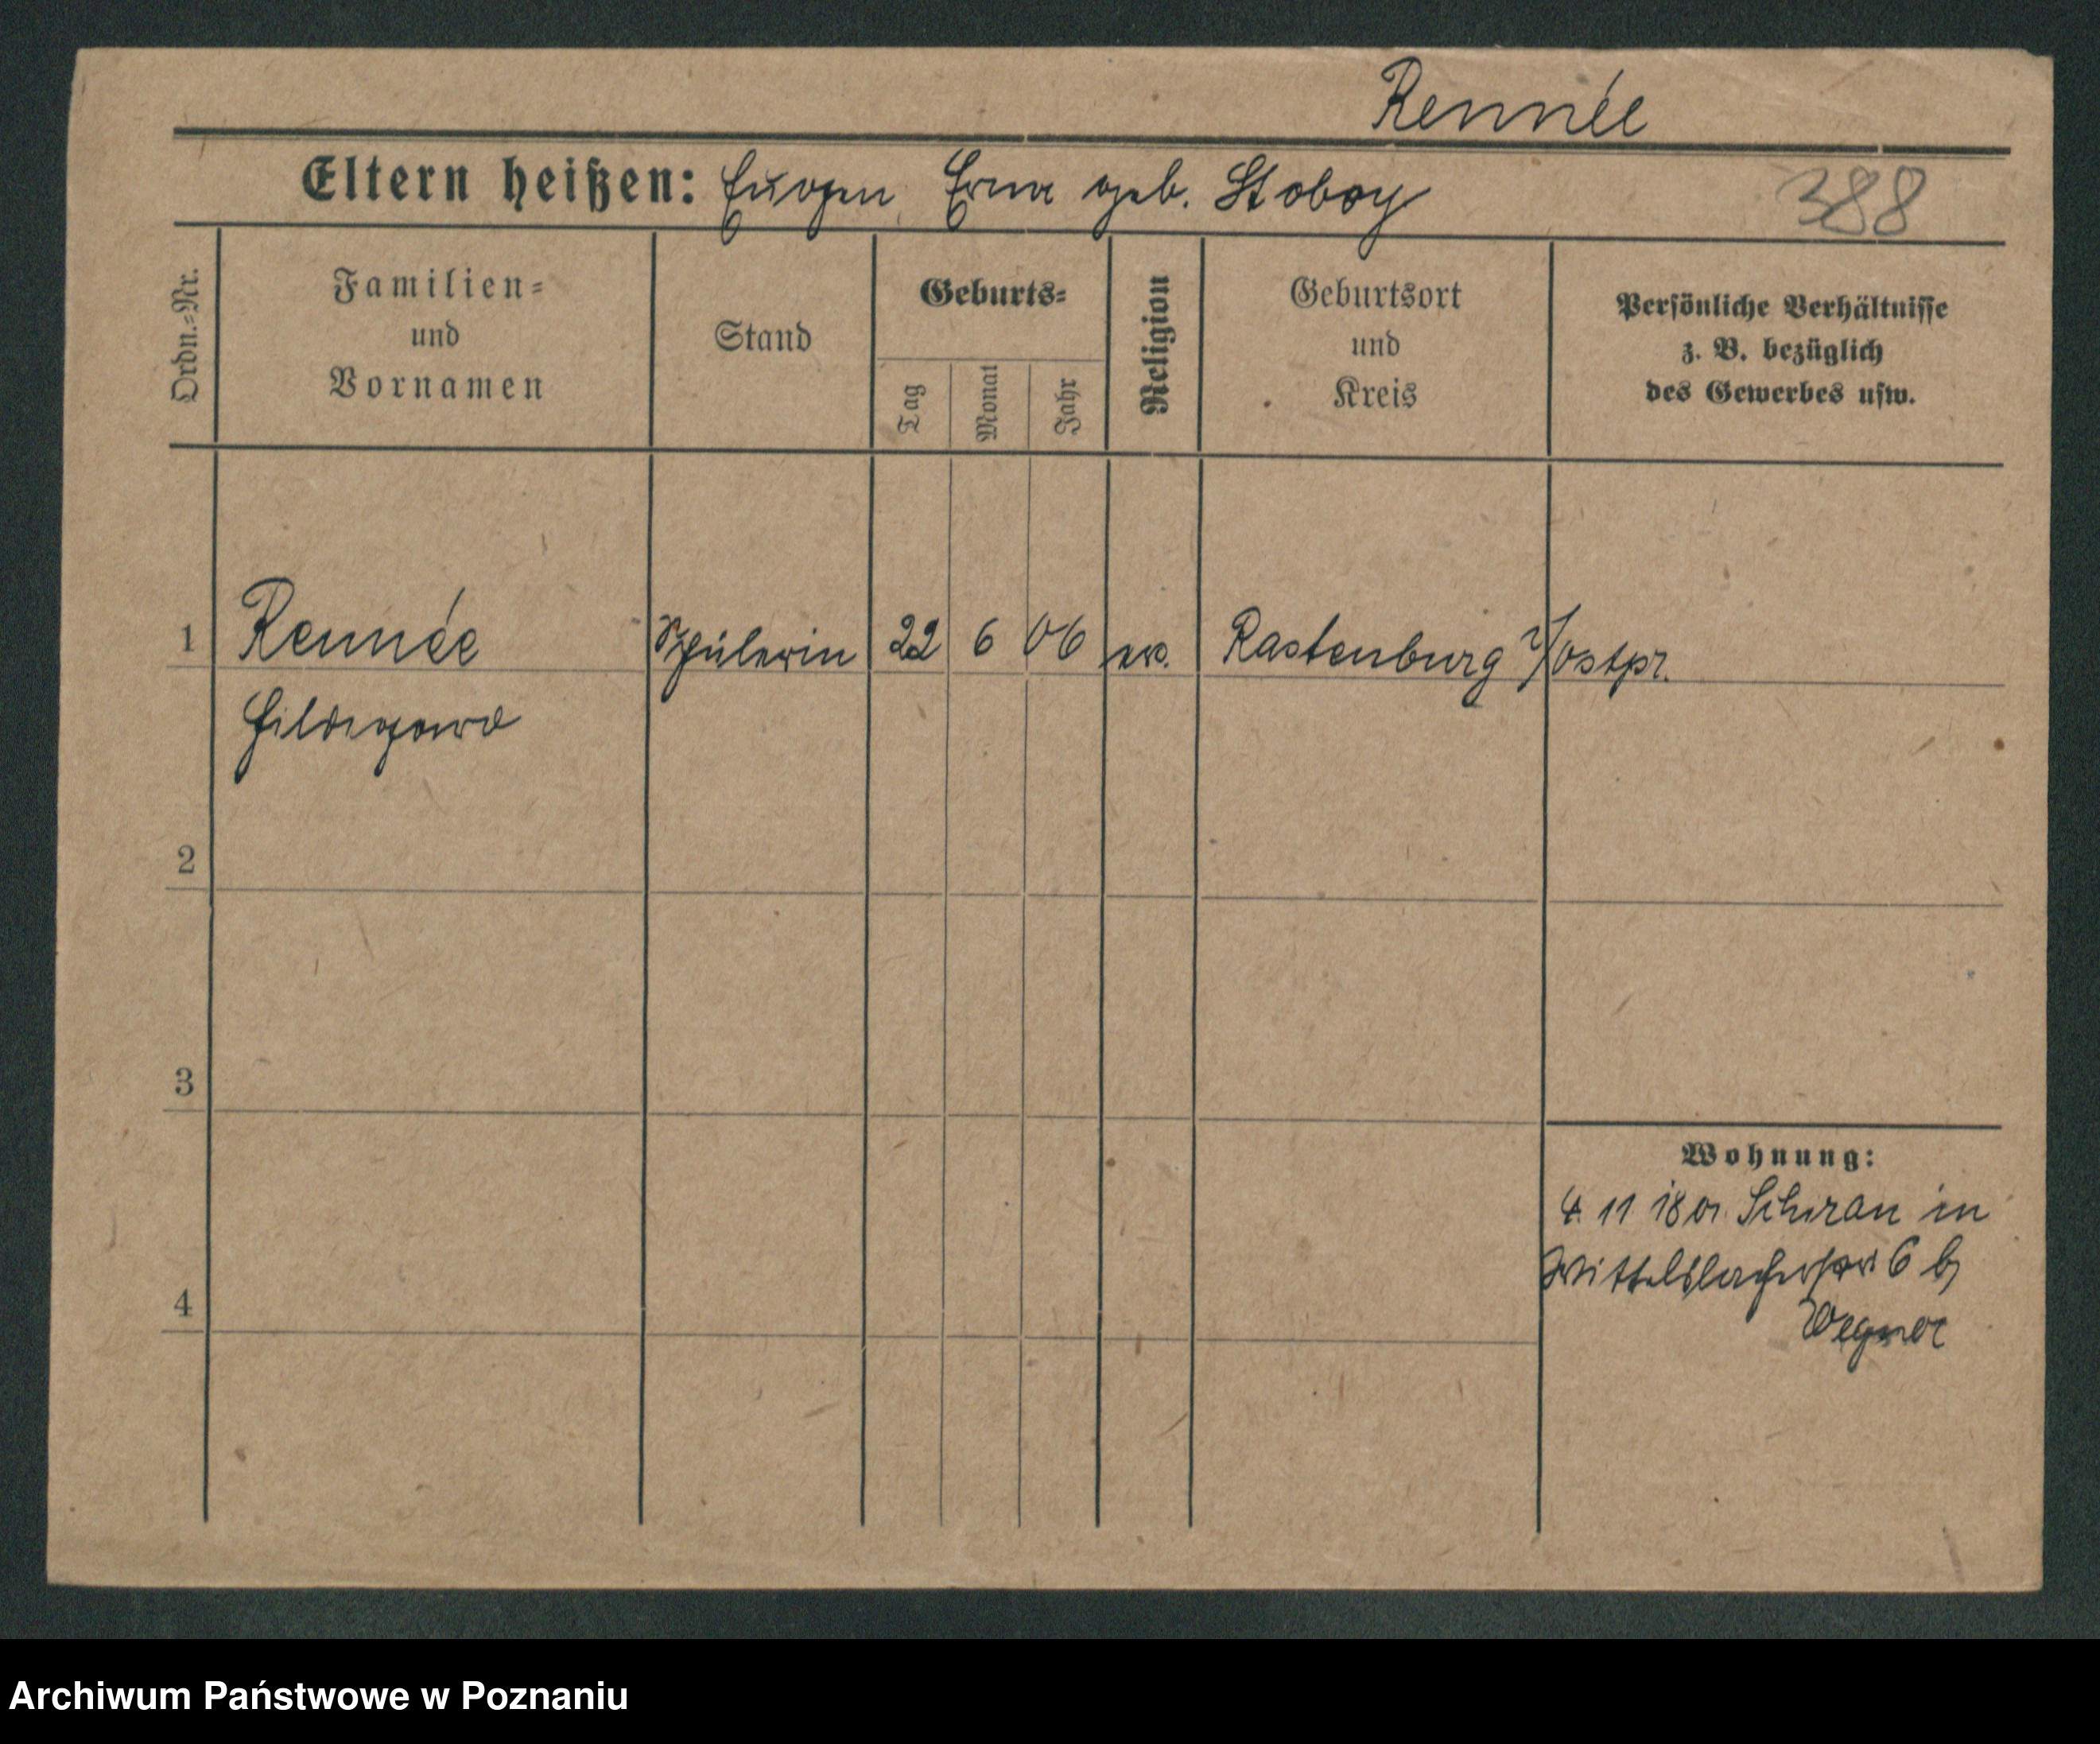 Rennée
Eltern heißen: Eugen, Erna geb. Stoboy
388
Ordn.=Nr.
Familien=
und
Vornamen
Stand
Geburts=
Tag
Monat
Jahr
Religion
Geburtsort
und
Kreis
Persönliche Verhältnisse
z. B. bezüglich
des Gewerbes usw.
1 Rennée Schülerin 22 6 06 ev. Rastenburg i/Ostpr.
Hildegard
2
3
4
Wohnung:
4. 11 18 in
6 b/
Wegner
Archiwum Państwowe w Poznaniu